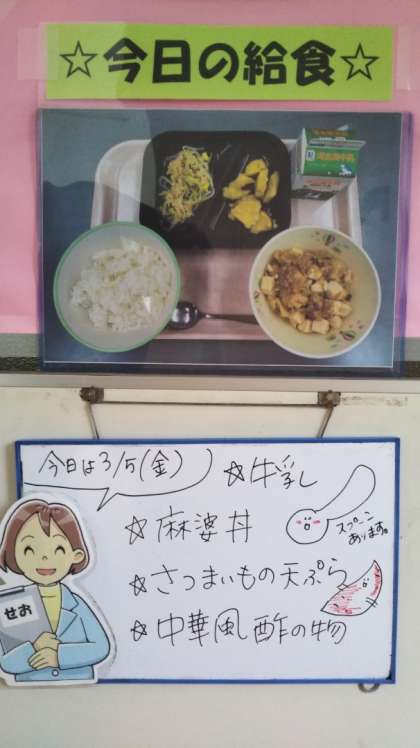 ☆今日の給食☆
今日は3/5(金)
☆牛乳
☆麻婆丼
スプーン
あります。
☆さつまいもの天ぷら
☆中華風酢の物
せお